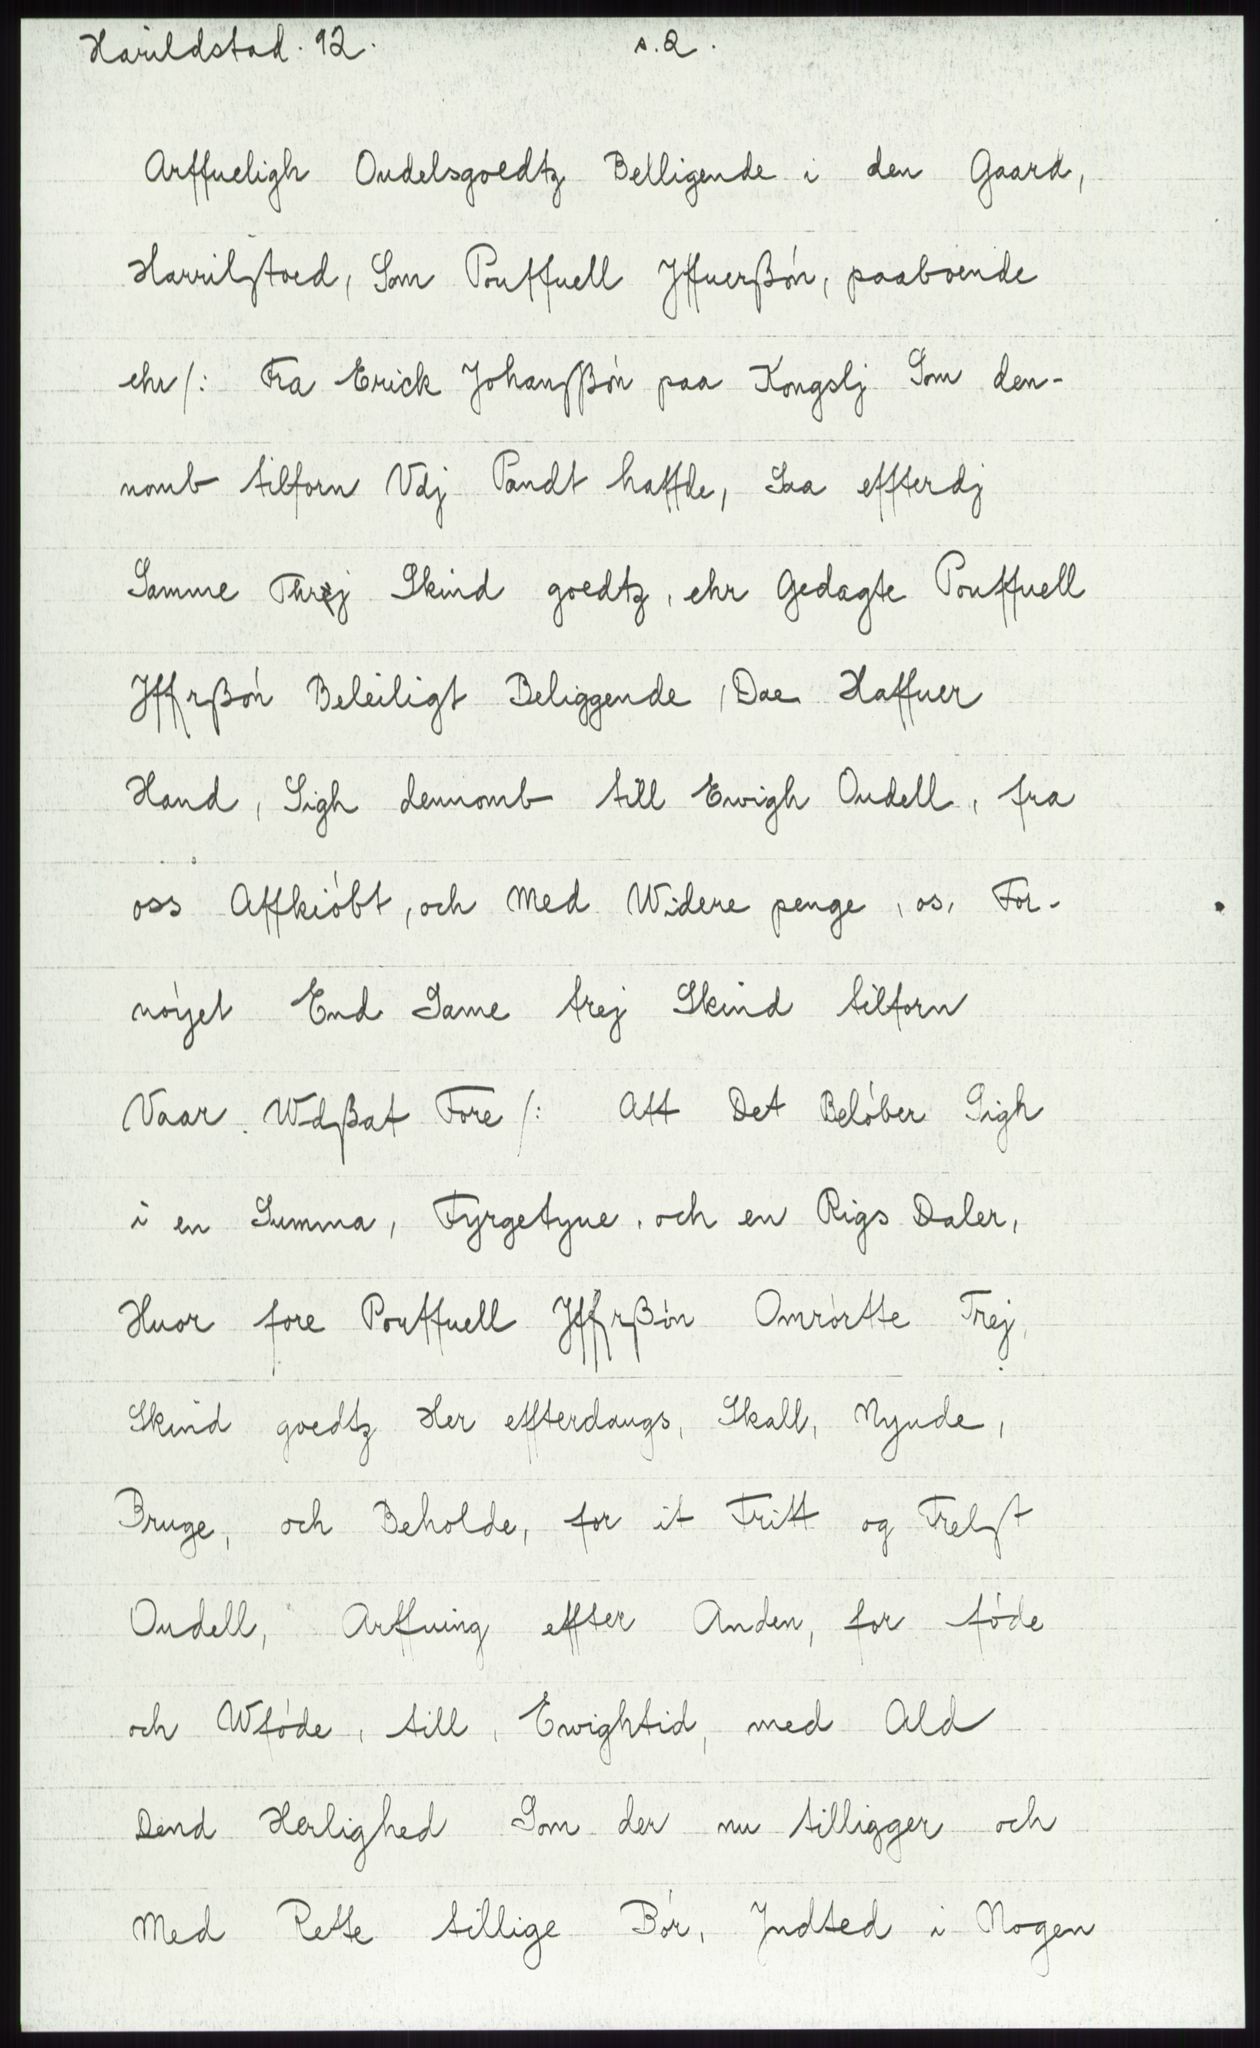 Harildstad. 92. s. 2.
Arffueligh Oudelsgoedtz Belligende i den Gaard,
Harrilstoed, Som Pouffuell Jffuerßón, paaboende
ehr /: Fra Erick Johansßón paa Kongslj Som den-
nomb tilforn Vdj Pandt haffde, Saa effterdj
Samme Threj Skind goedtz, ehr Gedagte Pouffuell
Jffrßón Beleiligt Beliggende, Dae Haffuer
Hand, Sigh dennomb till Ewigh Oudell, fra
oss Affkióbt, och Med Widere penge, os, For-
nóyet End Same trej Skind tilforn
Vaar. Wdßat Fore /: Att Det Belóber Sigh
i en Summa, Fyrgetyue, och en Rigs Daler,
Huor fore Pouffuell Jffrßón Omrórtte Trej,
Skind goedtz Her effterdaugs, Skall, Nyude,
Bruge, och Beholde, for it Fritt og Frelst
Oudell, Arffuing effter Anden, for fóde
och Wfóde, till, Ewightid, med Ald
Dend Herlighed Som der nu tilligger och
Med Rette tillige Bór, Jndted i Nogen